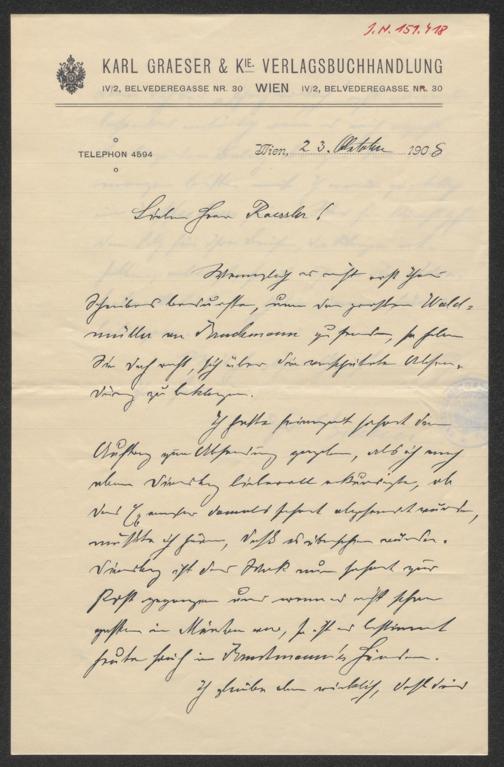 J.N. 151.418
KARL GRAESER & KIE. VERLAGSBUCHHANDLUNG
IV/2, BELVEDEREGASSE NR. 30 WIEN IV/2, BELVEDEREGASSE NR. 30
TELEPHON 4594
Wien, 23. Oktober 1908
Lieber Herr Roessler!
Wenngleich es nicht erst Ihres
Schreibens bedurfte, um den großen Wald-
müller an Bruckmann zu senden, so haben
Sie doch recht, sich über die verspätete Absen-
dung zu beklagen.
Ich hatte seinerzeit sofort den
Auftrag zur Absendung gegeben, als ich mich
aber Dienstag erkundigte, ob
das Ex damals sofort abgesandt wurde,
mußte ich hören, daß es übersehen wurde.
Dienstag ist das Werk nun sofort zur
Post gegangen und wenn es nicht schon
gestern in München war, so ist es bestimmt
heute früh in Bruckmann's Händen.
Ich glaube aber wirklich, daß die